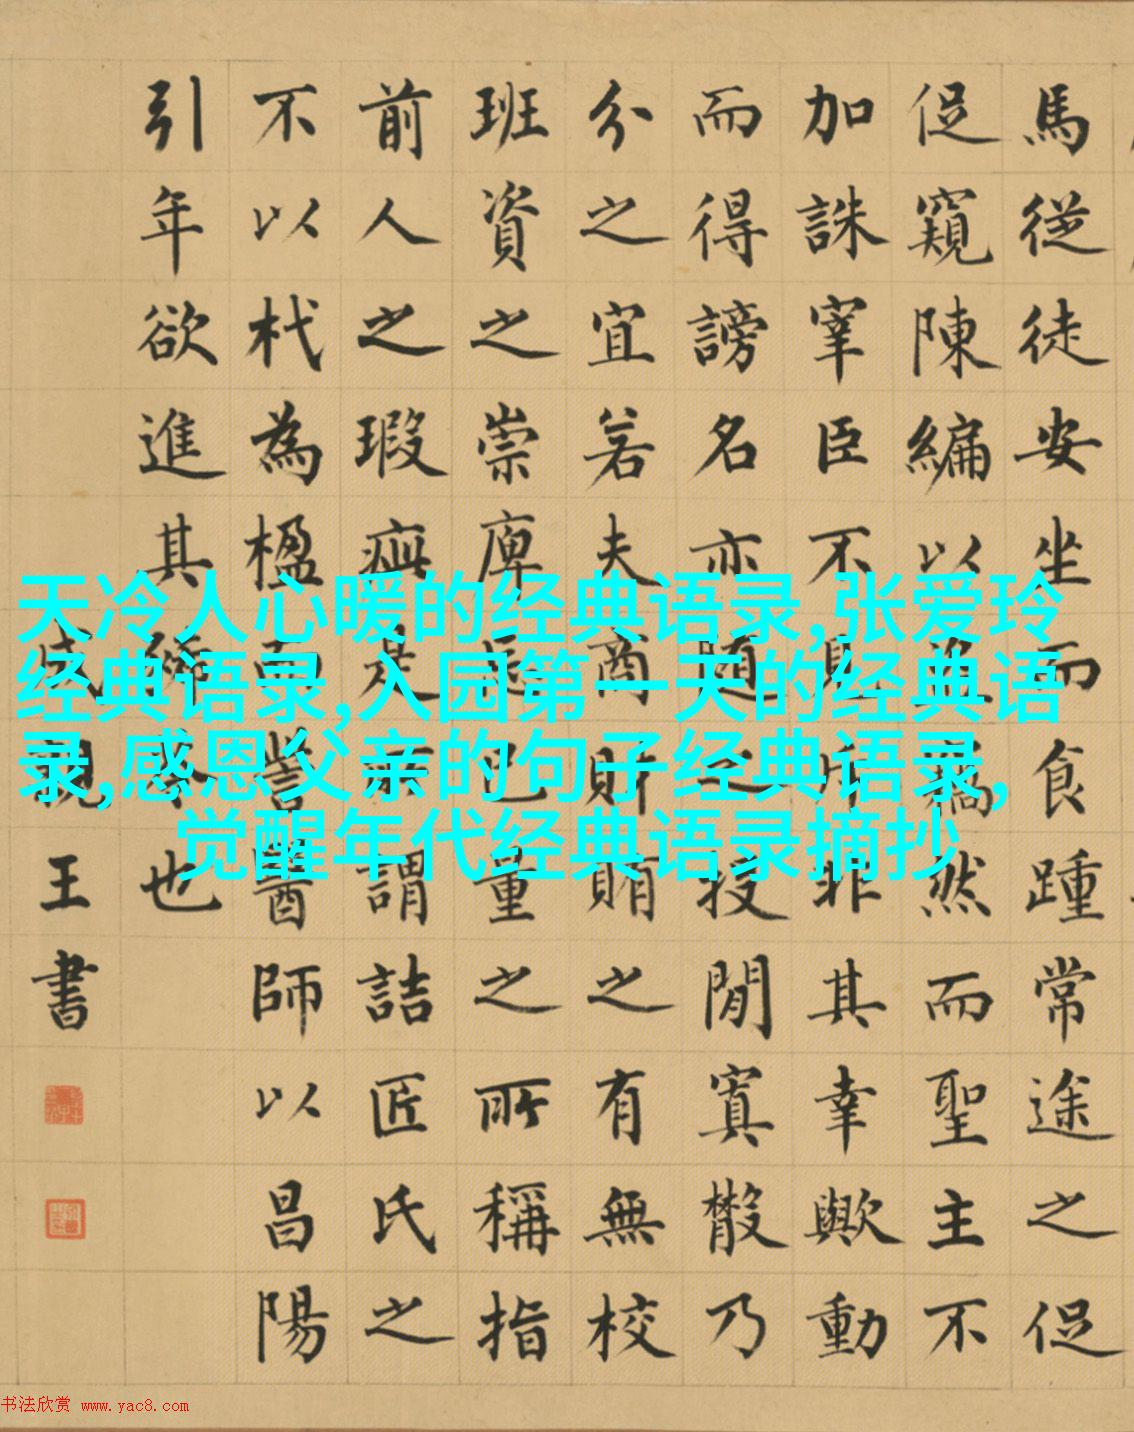 馬從徒安坐而食踵常途之促
促窺陳編以盜竊然而聖主不
加誅宰臣不見斥非其幸歟動
而得謗名亦隨之投閒寘散乃
分之宜若夫商財賄之有無校
班資之崇庳忘己量之所稱指
前人之瑕疵是所謂詰匠氏之
不以杙為楹而訾醫師以昌陽
引年欲進其豨苓也
成親王書
天冷人心暖的经典语录,张爱玲
经典语录,入园第一天的经典语
录,感恩父亲的句子经典语录,
觉醒年代经典语录摘抄
书法欣赏 www.yac8.com